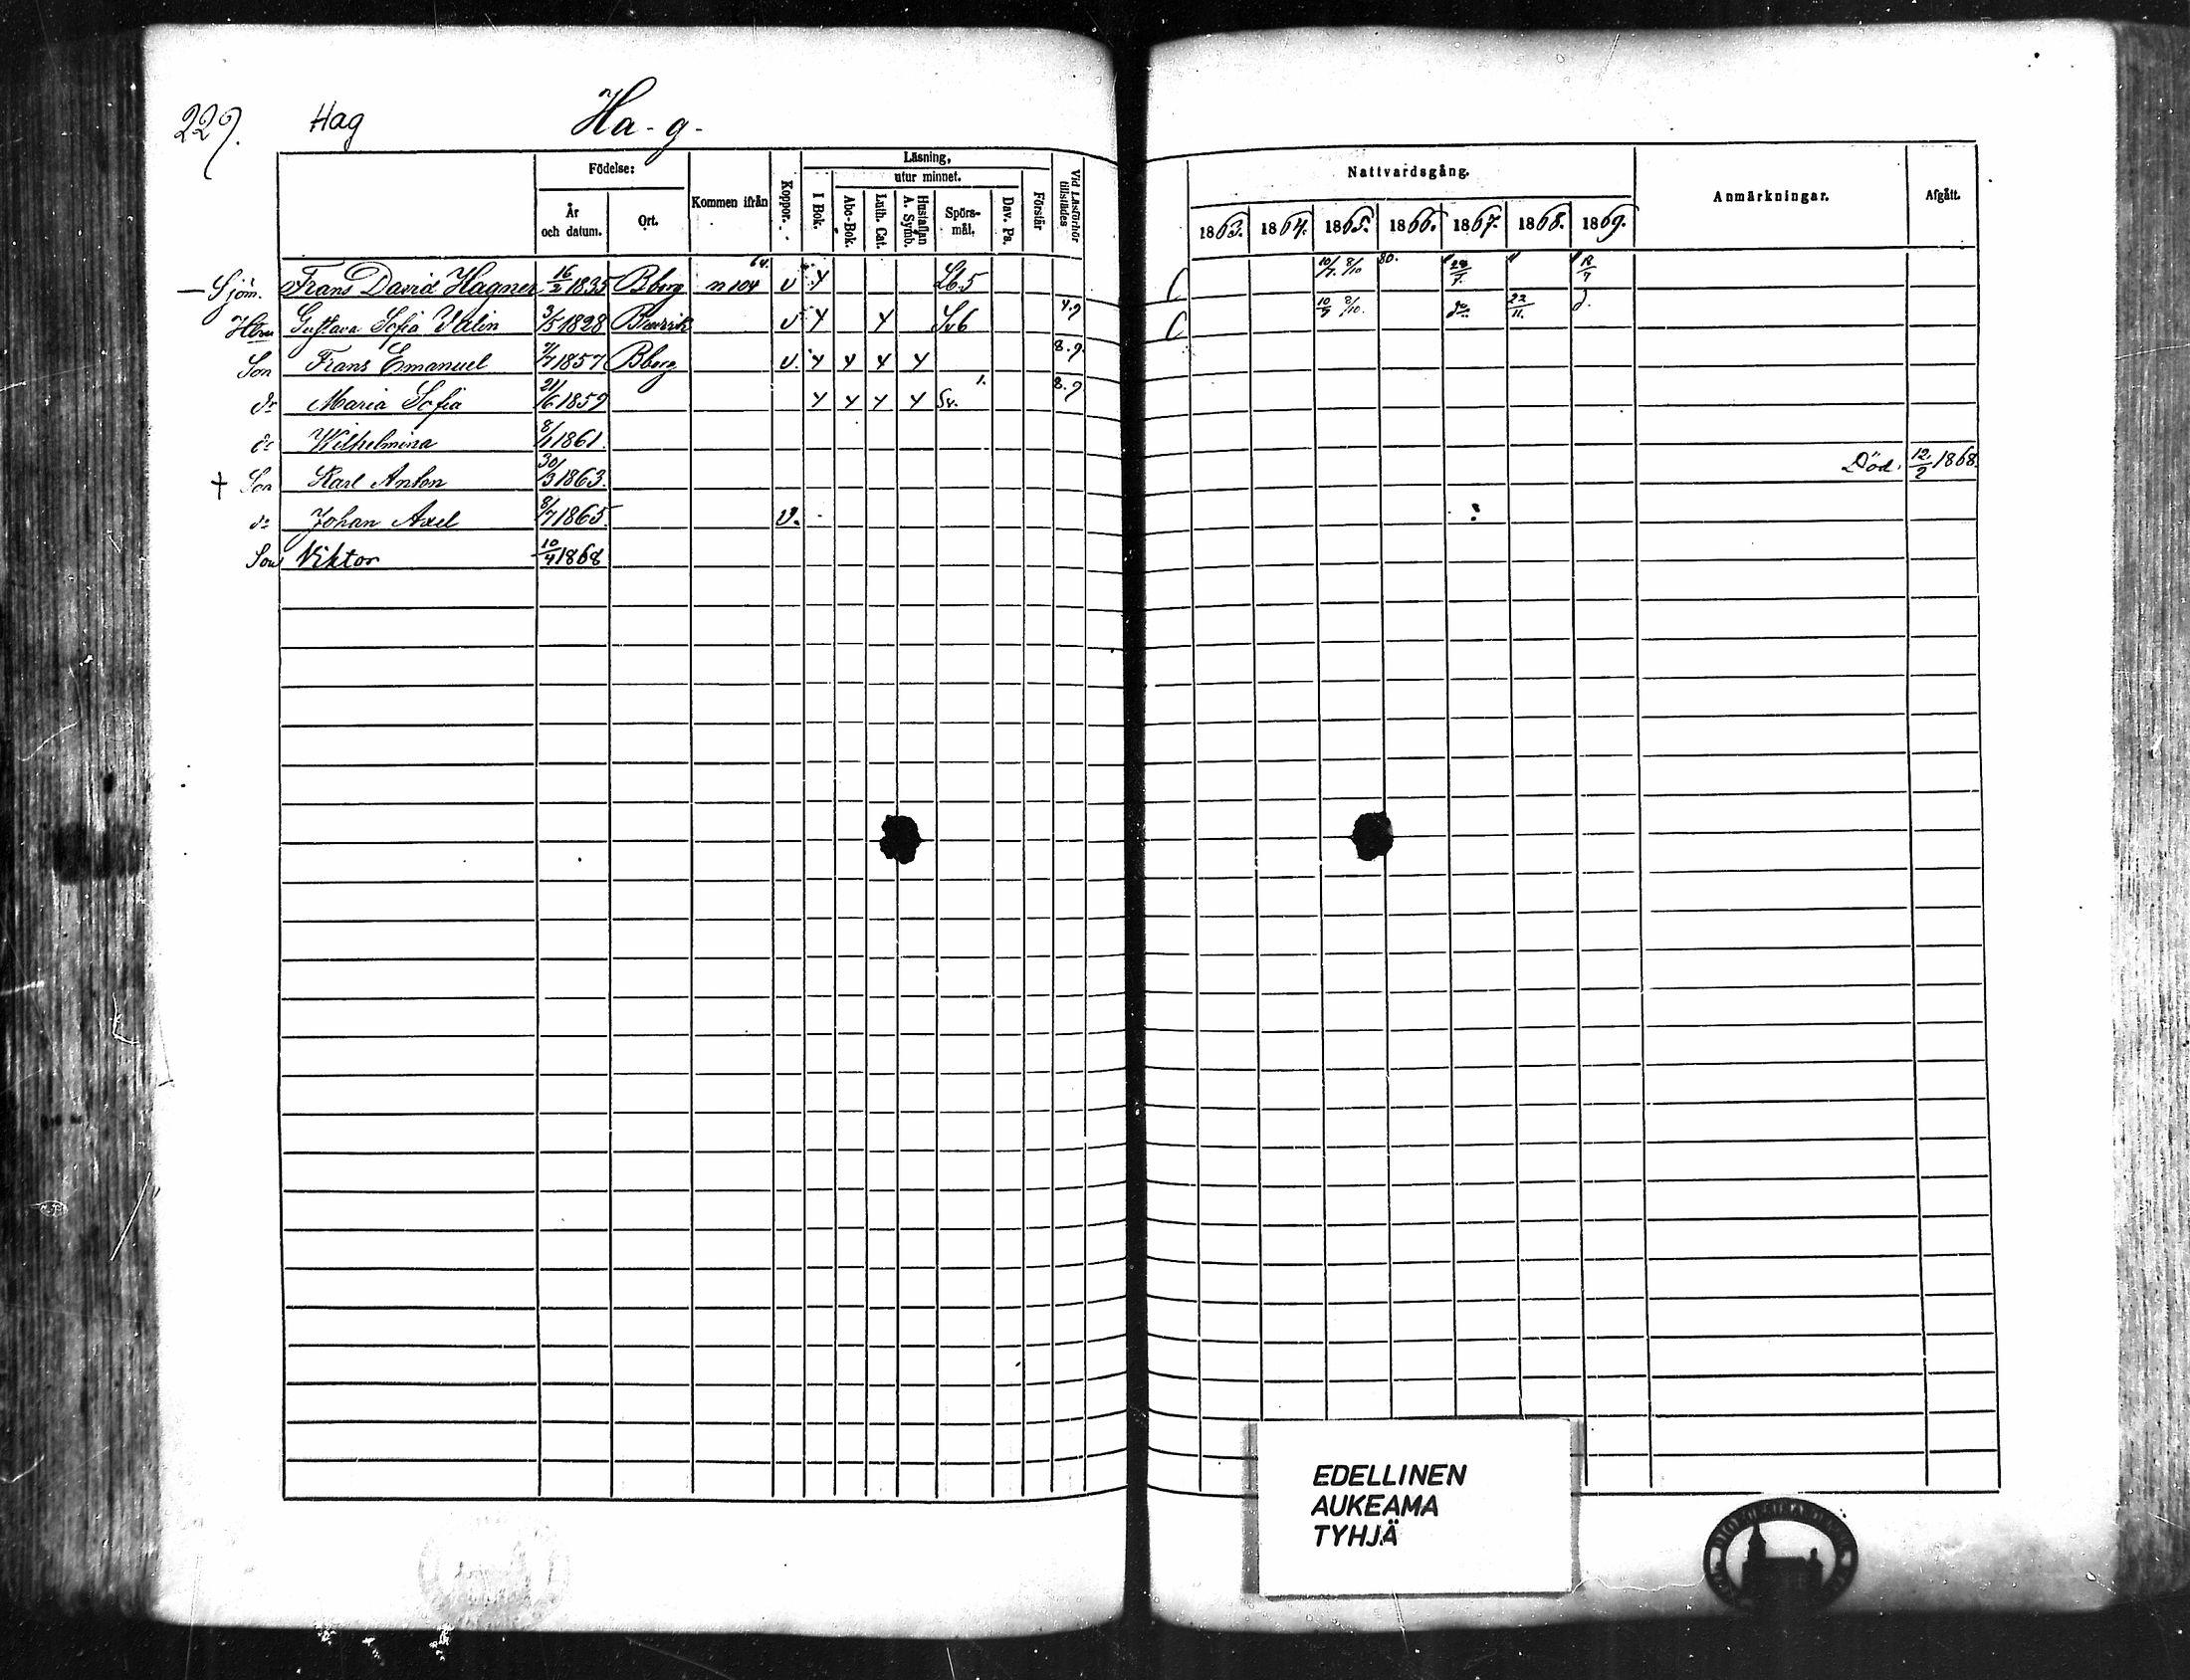 229.
Hag
Ha-g-
Födelse:
År och datum.
Ort.
Kommen ifrån
Koppor.
Läsning,
utur minnet.
I Bok.
Abc-Bok.
Luth. Cat.
Hustaflan A. Symb.
Spörs-mål.
Dav. Ps.
Förstår
Vid Läsförhör tillstädes
Nattvardsgång.
1863. 1864. 1865. 1866. 1867. 1868. 1869.
Anmärkningar.
Afgått.
Sjöm. Frans David Hagner 16/2 1835 Bborg n 104 64. v Y Lb.5 10/7. 8/10 80.
Hstru Gustava Sofia 3/5 1828 v Y Y Sv6 4.9 8/10. do 22/11.
Son Frans Emanuel 1857 Bborg v. Y Y Y Y 8.9.
dr Maria Sofia 21/6 1859 Y Y Y Y Sv. 1. 8.9
dr Wilhelmina 1861.
† Son Karl Anton 30/3 1863. Död. 12/2 1868.
do Johan Axel 8/7 1865. v.
Son Viktor 10/4 1868
EDELLINEN
AUKEAMA
TYHJÄ